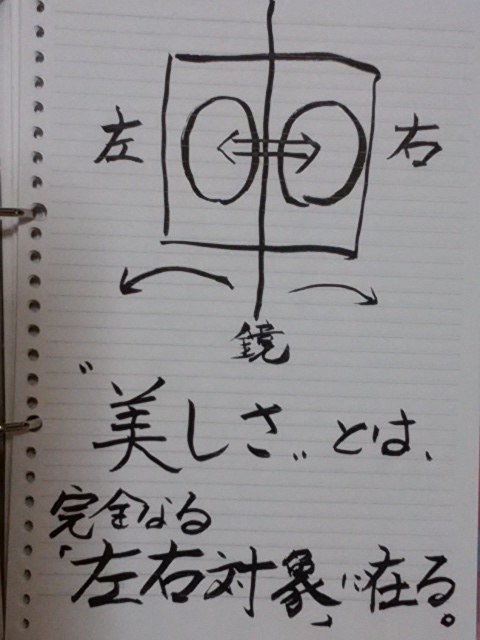 左 右
鏡
"美しさ"とは、
完全なる
「左右対象」に在る。